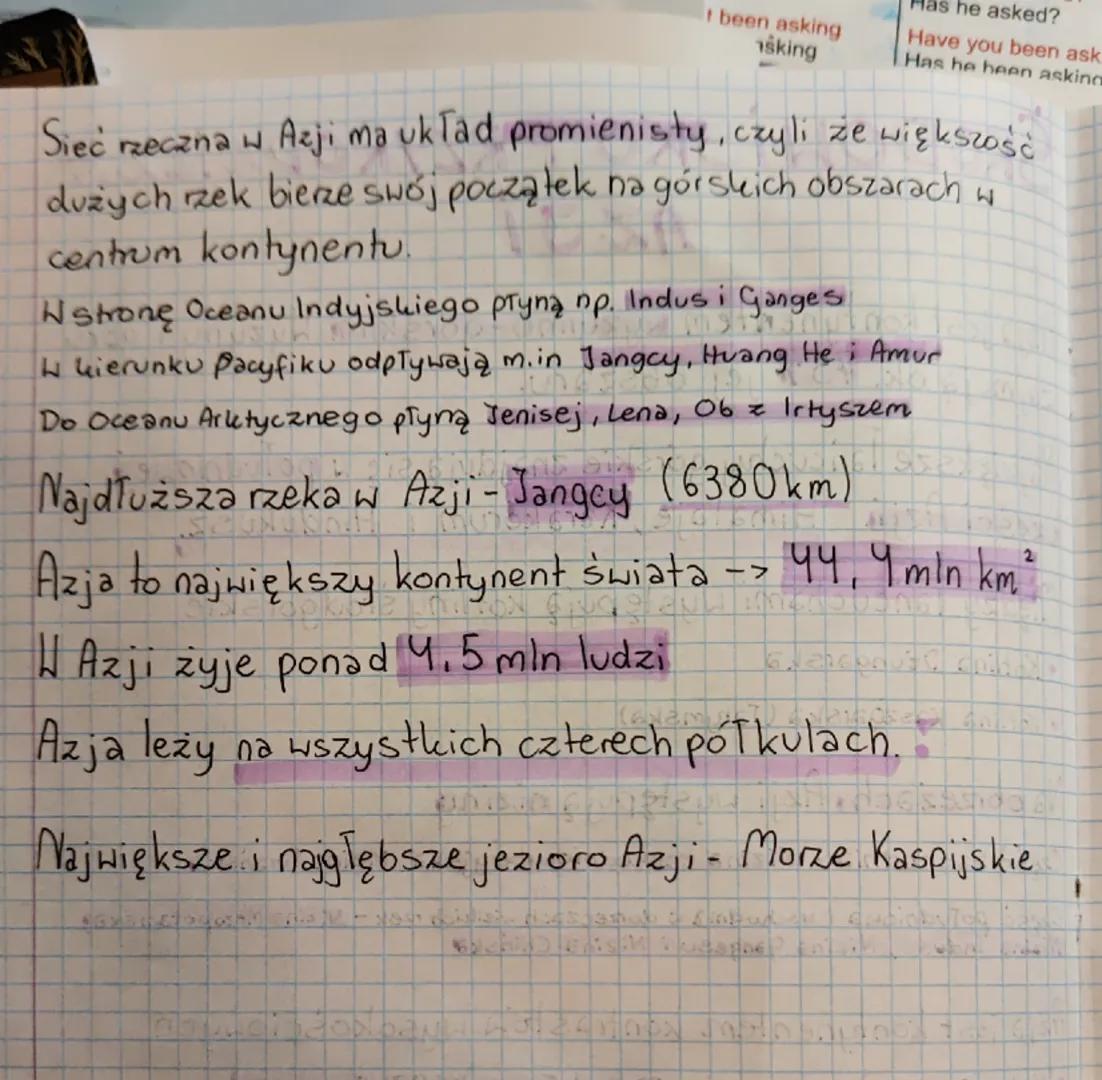 t been asking
asking
Has he asked?
Have you been ask
Has he been asking
Sieć rzeczna w Azji ma układ promienisty, czyli że większość
dużych rzek bierze swój początek na górskich obszarach w
centrum kontynentu.
W stronę Oceanu Indyjskiego płyną np. Indus i Ganges
W kierunku Pacyfiku odpływają m.in Jangcy, Huang He i Amur
Do Oceanu Arktycznego płyną Jenisej, Lena, Ob z Irtyszem
Najdłuższa rzeka w Azji - Jangcy (6380km)
Azja to największy kontynent świata --> 44,4 mln km²
W Azji żyje ponad 4,5 mln ludzi
Azja leży na wszystkich czterech półkulach.
Największe i najgłębsze jezioro Azji - Morze Kaspijskie